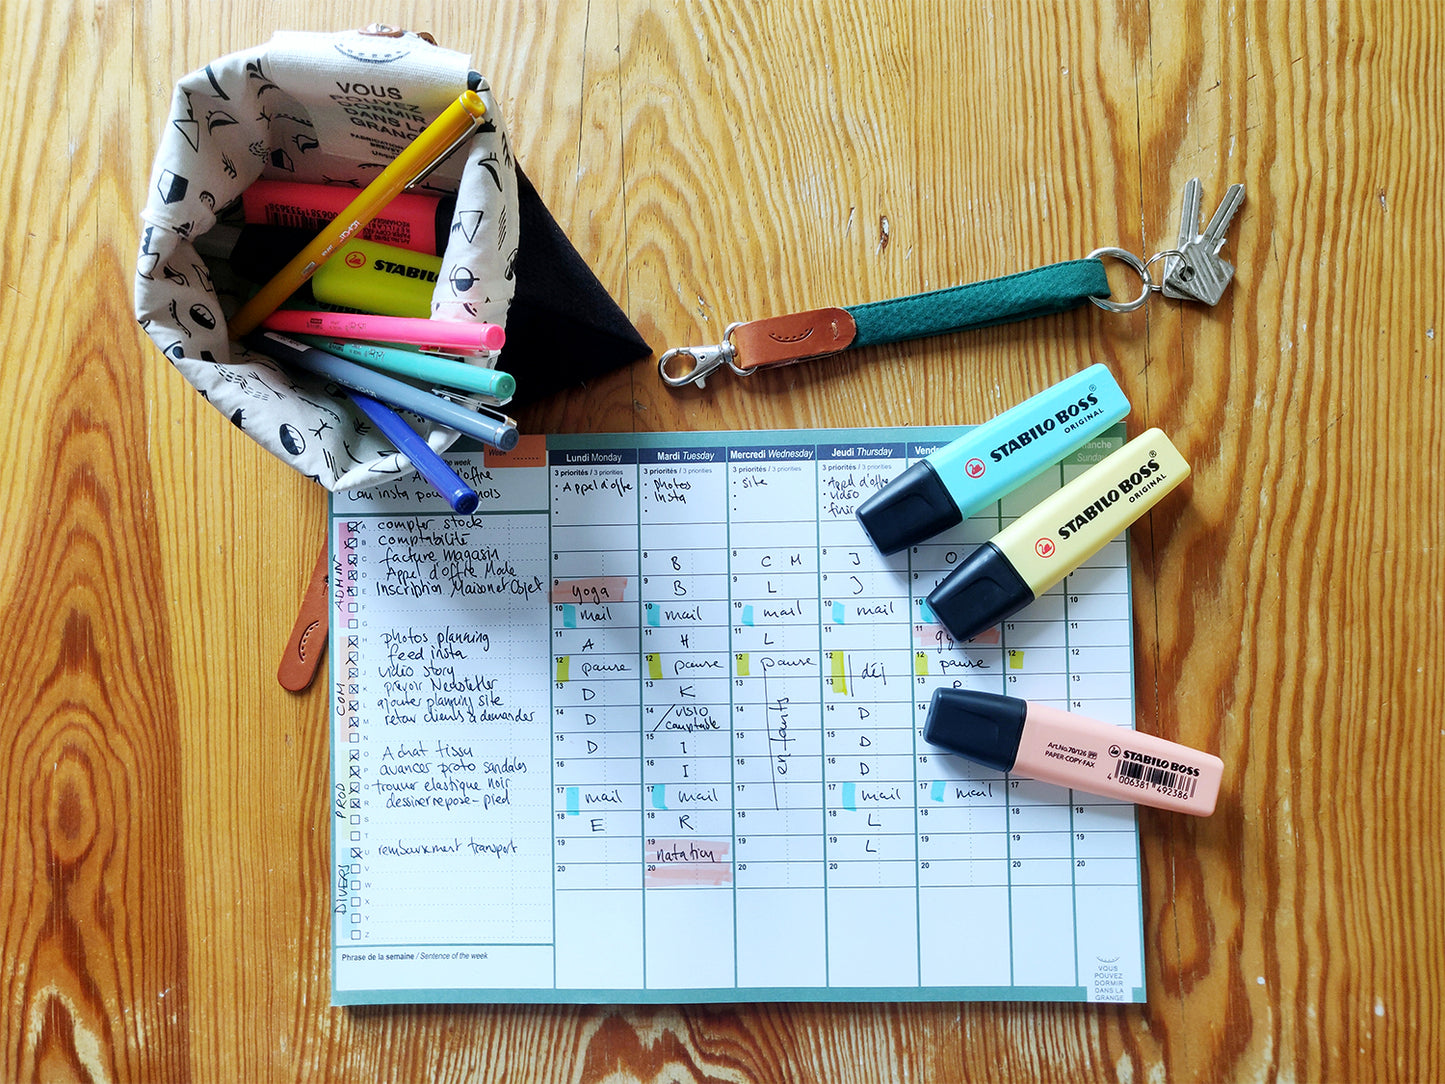 VOUS
POUVEZ
DORMIR
DANS LA
GRANGE
STABILO
STABILO BOSS®
ORIGINAL
STABILO BOSS®
ORIGINAL
Art.No.70/126
PAPER·COPY·FAX
STABILO BOSS
4 006381 492386
Week
the week
Lundi Monday
Mardi Tuesday
Mercredi Wednesday
Jeudi Thursday
Sunday
3 priorités / 3 priorities
3 priorités / 3 priorities
3 priorités / 3 priorities
3 priorités / 3 priorities
Appel d'offre
Photos
Insta
site
Appel d'offre
vidéo
finir
ADMIN
A compter stock
B comptabilité
C facture magasin
D Appel d'offre Mode
E Inscription Maison et Objet
F
G
COM
H photos planning
I feed insta
J vidéo story
K prévoir Newsletter
L ajouter planning site
M retour clients à demander
N
PROD
O Achat tissu
P avancer proto sandales
Q trouver elastique noir
R dessiner repose-pied
S
T
DIVERS
U remboursement transport
V
W
X
Y
Z
8 8 B 8 C M 8 J 8 O
9 yoga 9 B 9 L 9 J 9
10 mail 10 mail 10 mail 10 mail 10
11 A 11 H 11 L 11 11 11 11
12 pause 12 pause 12 pause 12 déj 12 pause 12 12
13 D 13 K 13 13 13 P 13 13
14 D 14 visio comptable 14 enfants 14 D
15 D 15 I 15 15 D
16 16 I 16 16 D 16
17 mail 17 mail 17 17 mail 17 mail
18 E 18 R 18 18 L 18 18 18
19 19 natation 19 19 L 19 19 19
20 20 20 20 20 20 20
Phrase de la semaine / Sentence of the week
VOUS
POUVEZ
DORMIR
DANS LA
GRANGE